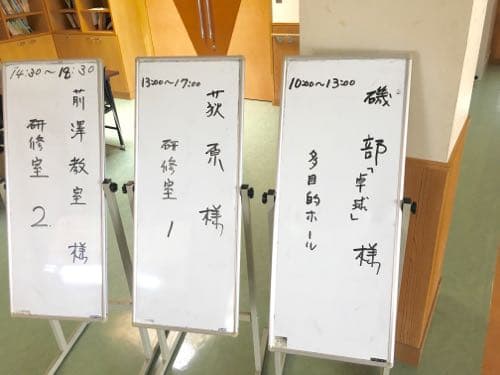 14:30～18:30
前澤教室 様
研修室 2
13:00～17:00
荻原 様
研修室 1
10:00～13:00
磯部「卓球」様
多目的ホール